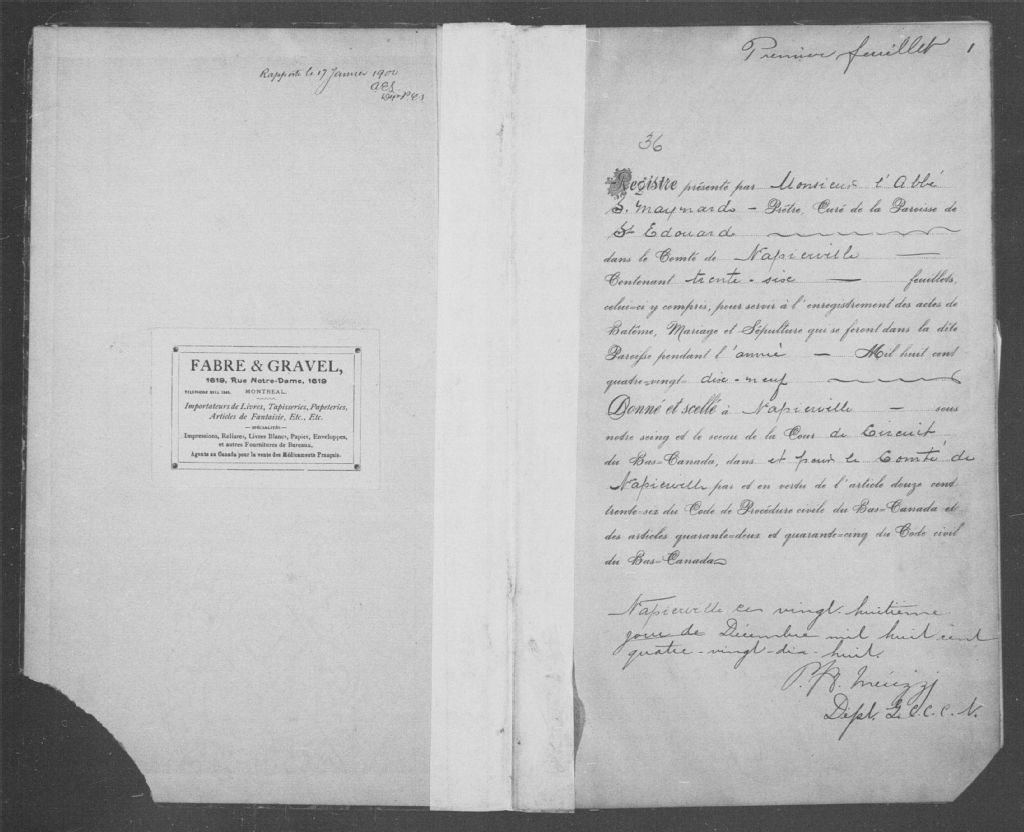 Rapporté le 17 Janvier 1900
FABRE & GRAVEL,
1619, Rue Notre-Dame, 1619
MONTREAL.
Importateurs de Livres, Tapisseries, Papeteries,
Articles de Fantaisie, Etc., Etc.
—SPÉCIALITÉS—
Impressions, Reliures, Livres Blancs, Papier, Enveloppes,
et autres Fournitures de Bureaux.
Agents au Canada pour la vente des Médicaments Français.
Premier feuillet 1
36
Registre présenté par Monsieur l'Abbé
Maynards – Prêtre, Curé de la Paroisse de
St Edouard
dans le Comté de Napierville —
Contenant trente-six — feuillets,
celui-ci y compris, pour servir à l'enregistrement des actes de
Batême, Mariage et Sépulture qui se feront dans la dite
Paroisse pendant l'année — Mil huit cent
quatre-vingt dix-neuf
Donné et scellé à Napierville — sous
notre seing et le sceau de la Cour de Circuit
du Bas-Canada, dans et pour le Comté de
Napierville par et en vertu de l'article douze cent
trente-six du Code de Procédure civile du Bas-Canada et
des articles quarante-deux et quarante-cinq du Code civil
du Bas-Canada
Napierville ce vingt-huitième
jour de Décembre mil huit cent
quatre-vingt-dix-huit.
Dépt. G.C.C.C.N.